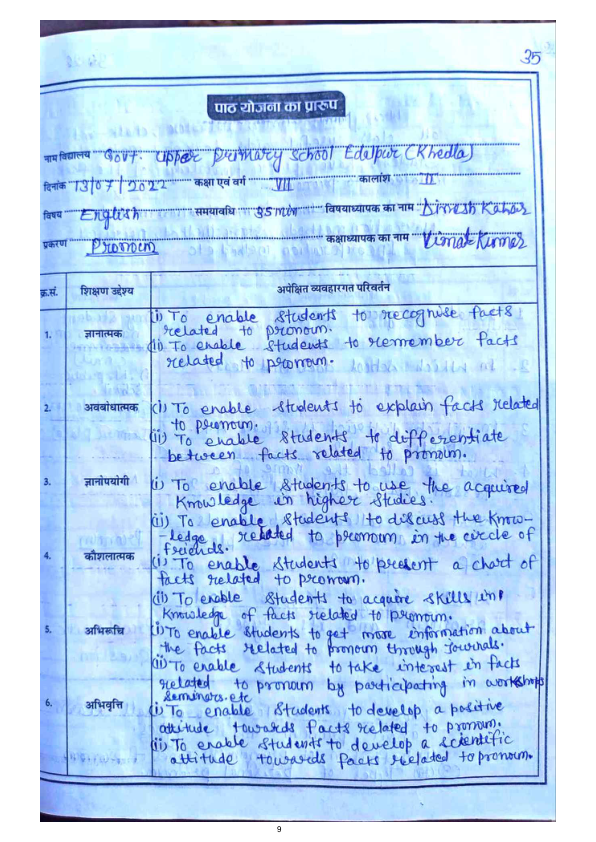 35
पाठ योजना का प्रारूप
नाम विद्यालय Govt. upper primary school Edalpur (Khedla)
दिनांक 13/07/2022 कक्षा एवं वर्ग VII कालांश II
विषय English समयावधि 35 min विषयाध्यापक का नाम Dinesh Kahar
प्रकरण Pronoum कक्षाध्यापक का नाम Vimal Kumar
क्र.सं. शिक्षण उद्देश्य अपेक्षित व्यवहारगत परिवर्तन
1. ज्ञानात्मक (i) To enable students to recognise facts
related to pronoum.
(ii) To enable students to remember facts
related to pronoum.
2. अवबोधात्मक (i) To enable students to explain facts related
to pronoum.
(ii) To enable students to differentiate
between facts related to pronoum.
3. ज्ञानोपयोगी (i) To enable students to use the acquired
Knowledge in higher studies.
(ii) To enable students to discuss the Know-
-ledge related to pronoum in the circle of
friends.
4. कौशलात्मक (i) To enable students to present a chart of
facts related to pronoum.
(ii) To enable students to acquire skills in
Knowledge of facts related to pronoum.
5. अभिरूचि (i) To enable students to get more information about
the facts related to pronoum through Journals.
(ii) To enable students to take interest in facts
related to pronoum by participating in workshops
Seminars.etc
6. अभिवृत्ति (i) To enable students to develop a positive
attitude towards facts related to pronoum.
(ii) To enable students to develop a scientific
attitude towards facts related to pronoum.
9